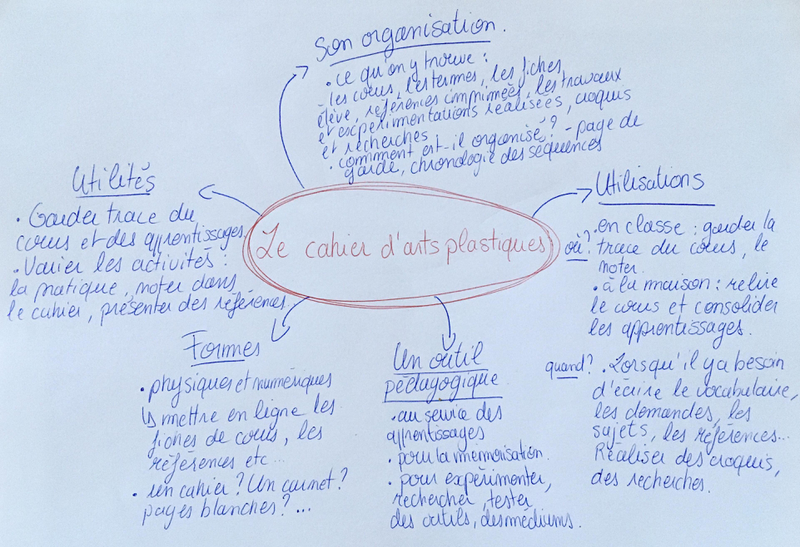 Son organisation.
• ce qu'on y trouve :
les cours, les termes, les fiches
élève, références imprimées, les travaux
et expérimentations réalisées, croquis
et recherches
• comment est-il organisé ? - page de
garde, chronologie des séquences
Utilités
• Garder trace du
cours et des apprentissages
• Varier les activités :
la pratique, noter dans
le cahier, présenter des références.
Le cahier d'arts plastiques
Utilisations
où ? • en classe : garder la
trace du cours, le
noter.
• à la maison : relire
le cours et consolider
les apprentissages.
quand ? • Lorsqu'il y a besoin
d'écrire le vocabulaire,
les demandes, les
sujets, les références...
Réaliser des croquis,
des recherches.
Formes
• physiques et numériques
↳ mettre en ligne les
fiches de cours, les
références etc...
• un cahier ? Un carnet ?
pages blanches ? ...
Un outil
pédagogique
• au service des
apprentissages
• pour la mémorisation.
• pour expérimenter,
rechercher, tester
des outils, des médiums.